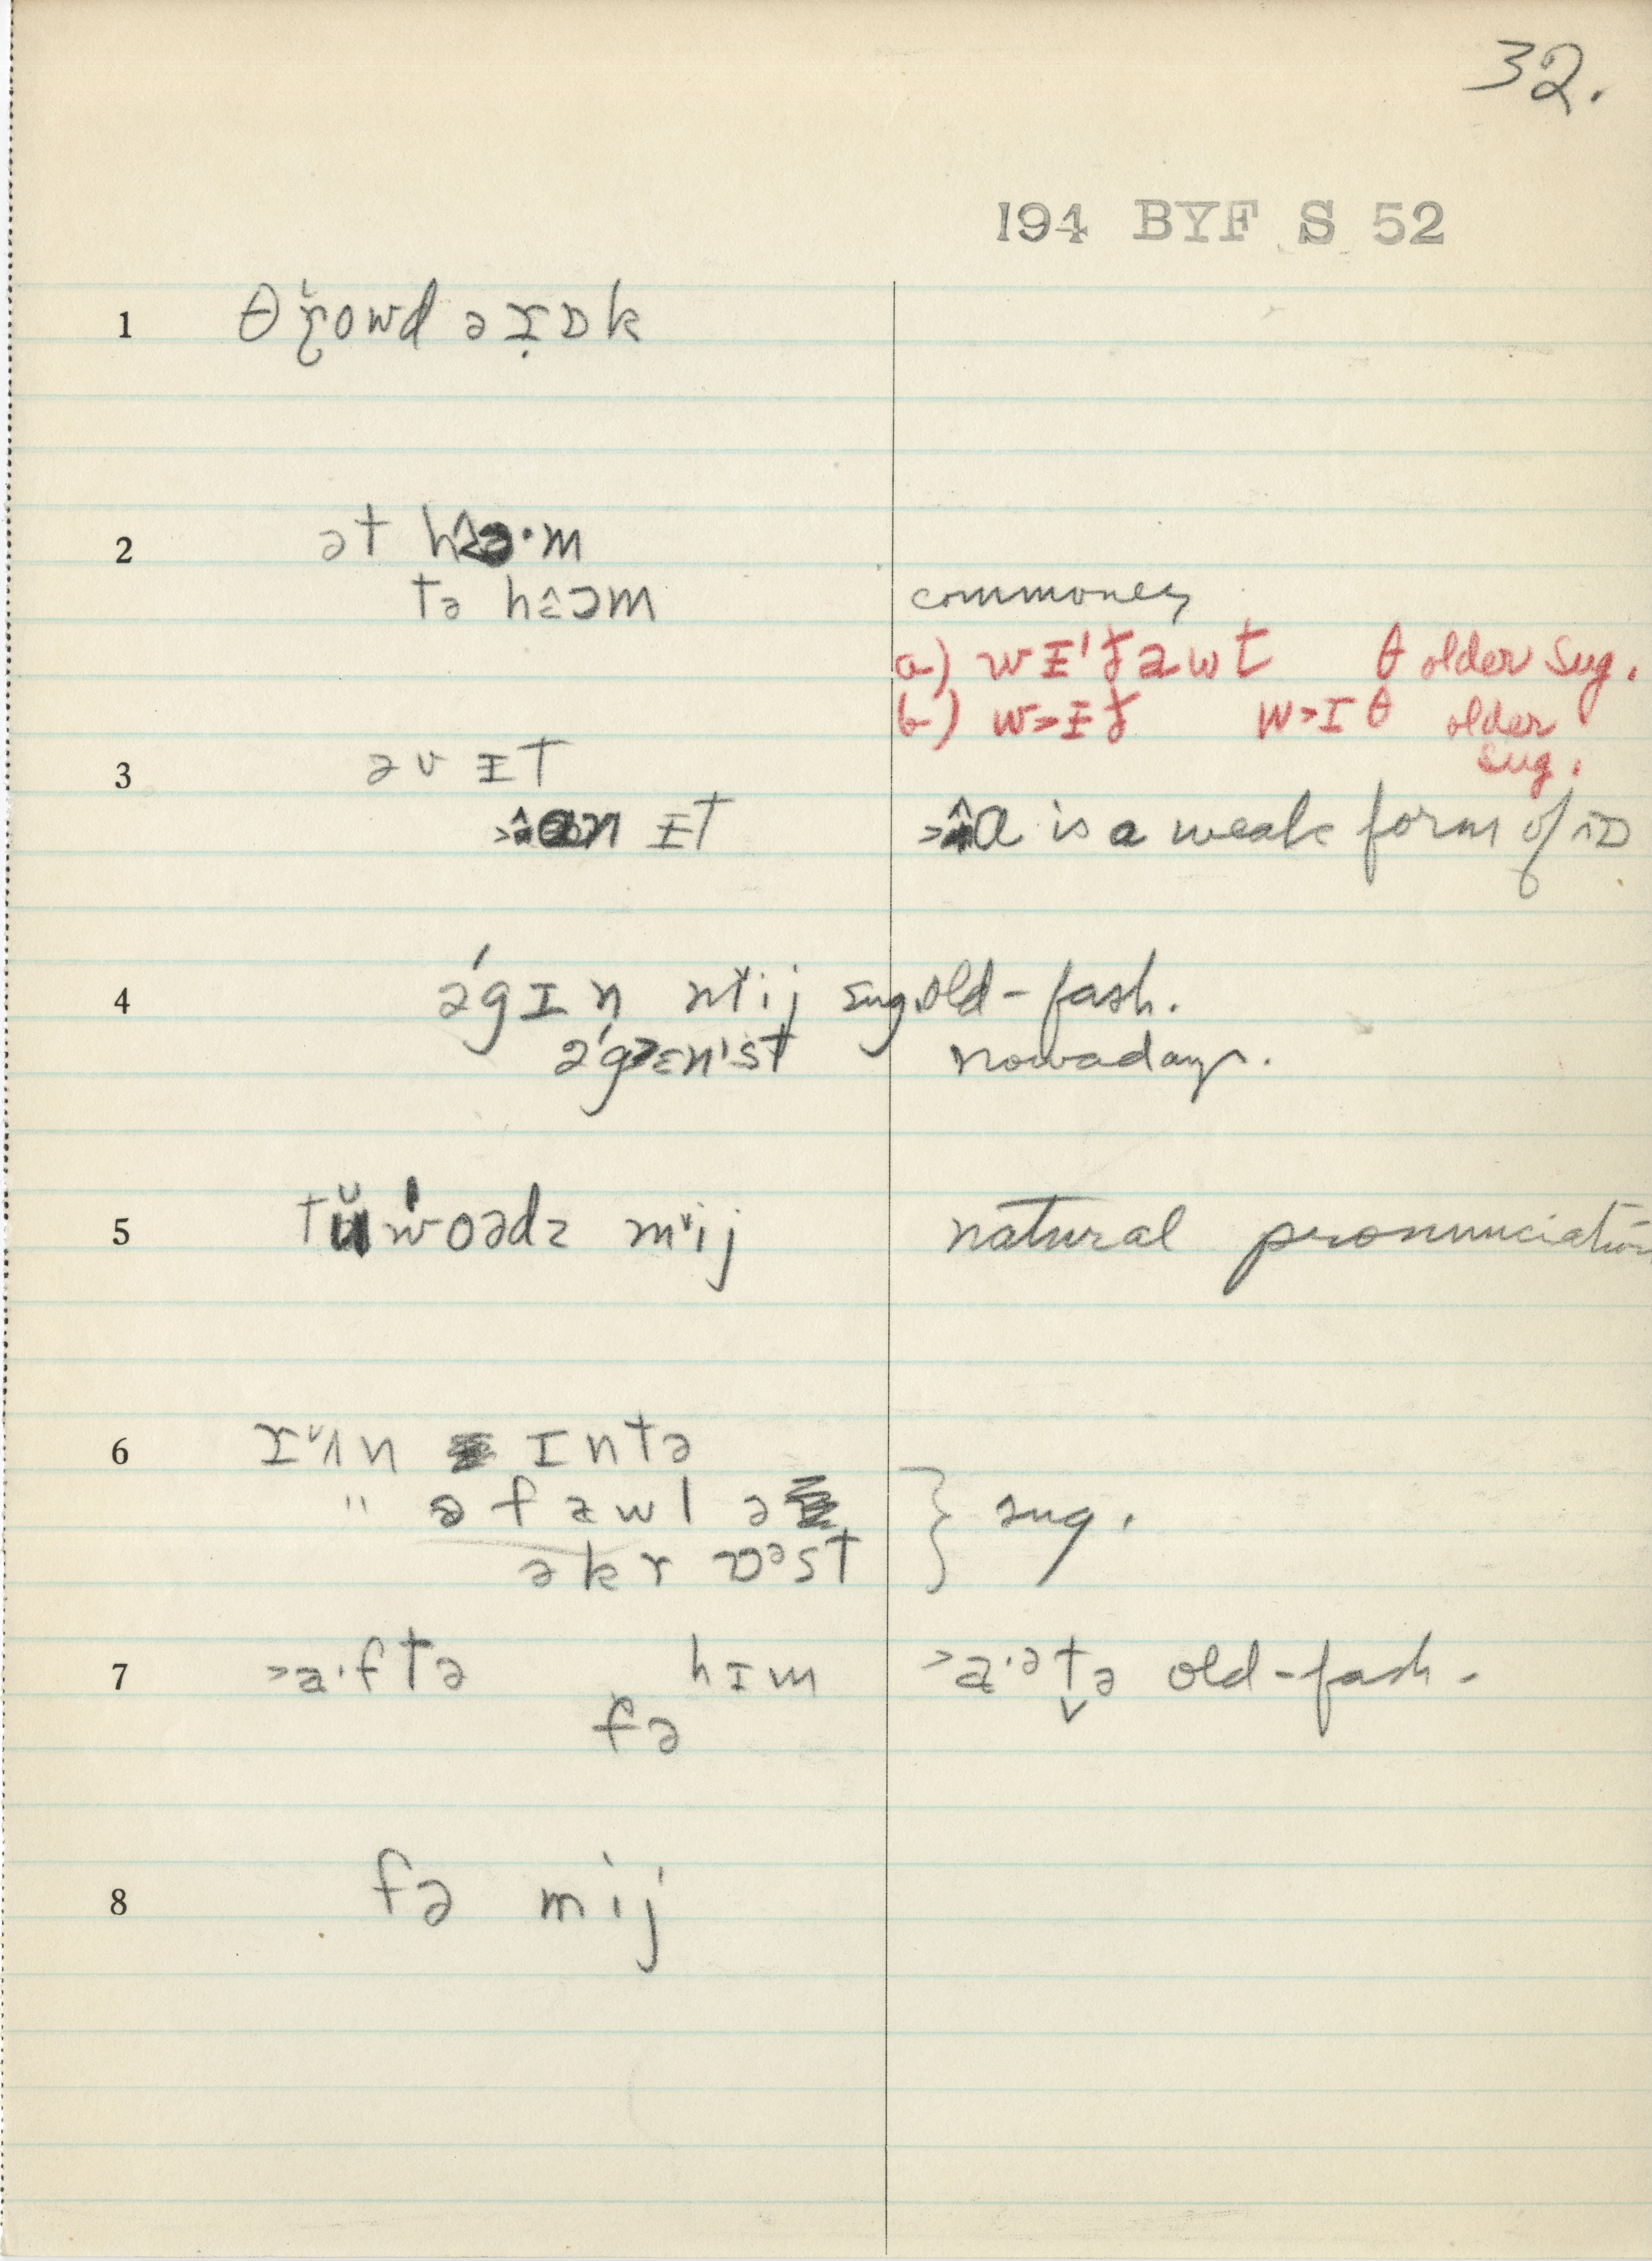 32.
194 BYF S 52
1 θɤ̆owd ə ɪ̣ɒk
2 ət h m
tə hɛ̂ɔm commoner
a) wɪ'ðawt θ older sug.
b) w>ɨð w>ɪθ older
sug.
3 əv ɨt
ɨt a is a weak form of ɒ
4 ə́gɪn stij sug. old-fash.
ə́g>ɛn'st nowadays.
5 tŭ'woədz mᵛij natural pronunciation
6 rᵛʌn ɪntə
" əfawl ə
əkrɒᵊst } sug.
7 >a·ftə hɪm >a·ᵊtə old-fash.
fə
8 fə mij